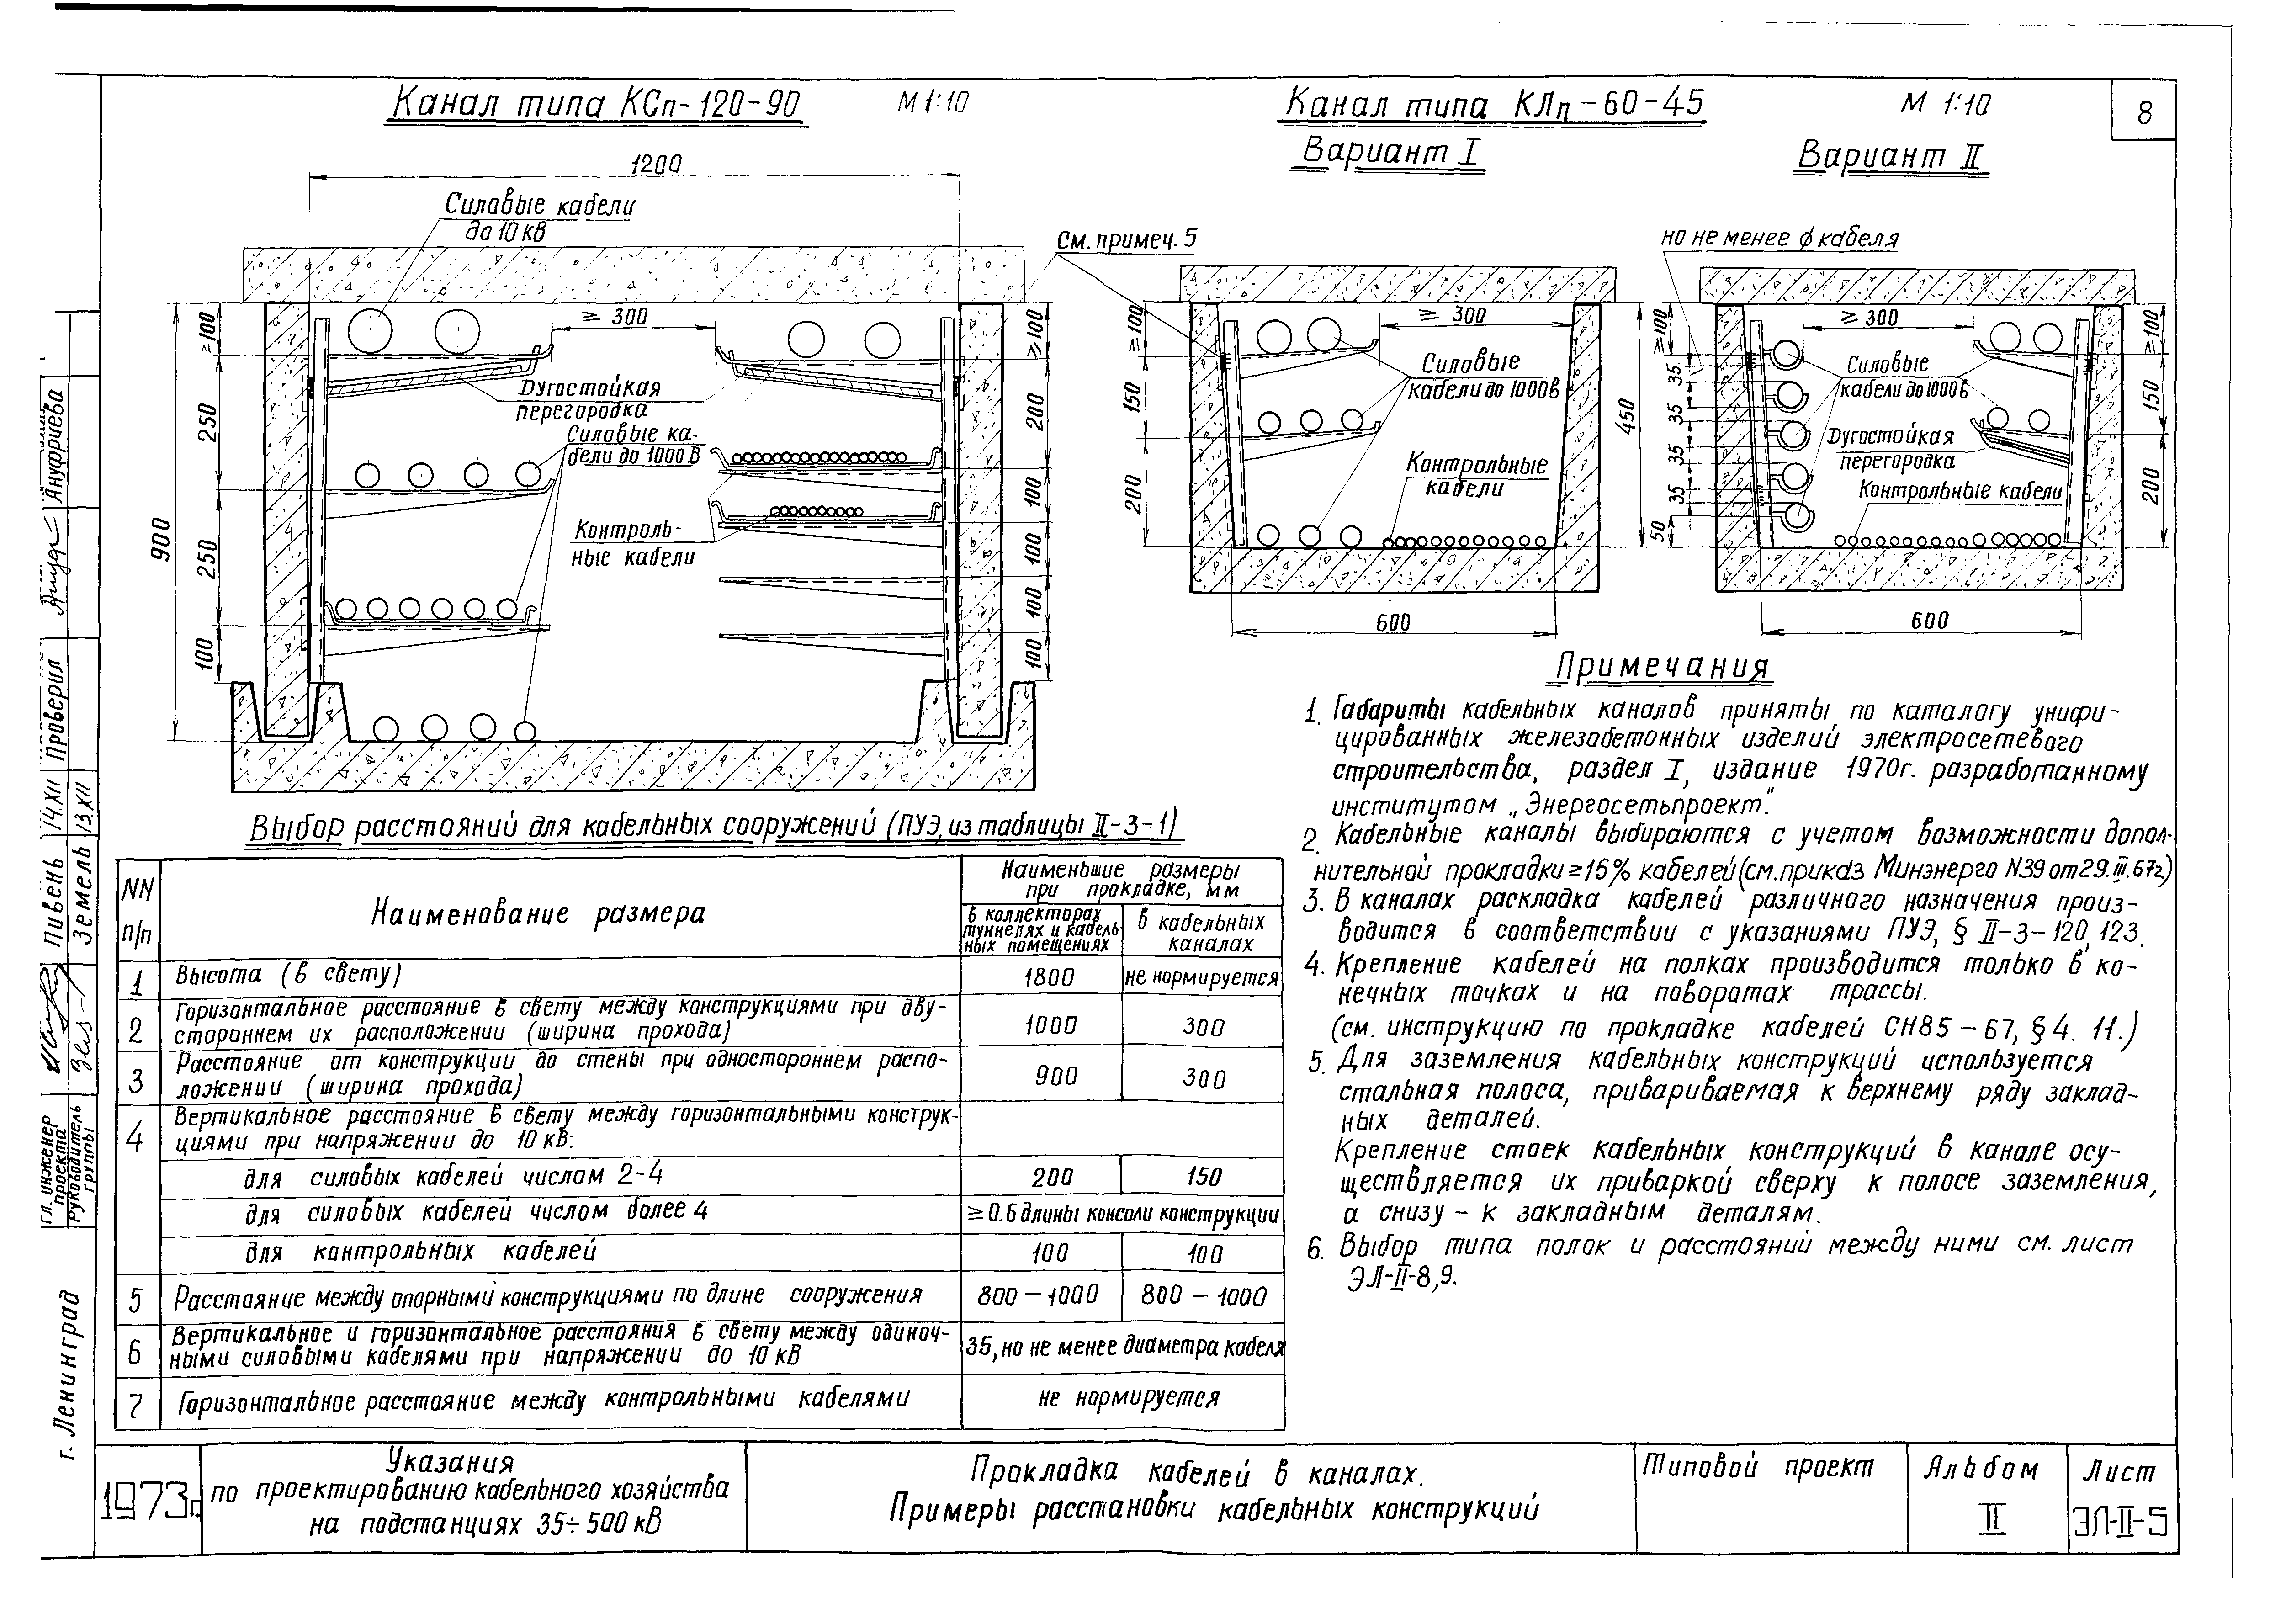 Канал типа КСп-120-90
М 1:10
Канал типа КЛп-60-45
М 1:10
8
Вариант I
Вариант II
1200
Силовые кабели
до 10 кв
≥ 300
Дугостойкая
перегородка
Силовые ка-
бели до 1000 В
Контроль-
ные кабели
900
≥100
250
250
100
≥100
200
100
100
100
100
См. примеч. 5
≥ 300
Силовые
кабели до 1000в
Контрольные
кабели
≥100
150
200
450
600
но не менее ϕ кабеля
≥ 300
Силовые
кабели до 1000в
Дугостойкая
перегородка
Контрольные кабели
≥100
35
35
35
35
35
50
≥100
150
200
600
Выбор расстояний для кабельных сооружений (ПУЭ, из таблицы II-3-1)
NN
п/п
Наименование размера
Наименьшие размеры
при прокладке, мм
в коллекторах
туннелях и кабель-
ных помещениях
в кабельных
каналах
1 Высота (в свету) 1800 не нормируется
Горизонтальное расстояние в свету между конструкциями при дву-
2 стороннем их расположении (ширина прохода) 1000 300
Расстояние от конструкции до стены при одностороннем распо-
3 ложении (ширина прохода) 900 300
Вертикальное расстояние в свету между горизонтальными конструк-
4 циями при напряжении до 10 кВ:
для силовых кабелей числом 2-4 200 150
для силовых кабелей числом более 4 ≥ 0.6 длины консоли конструкции
для контрольных кабелей 100 100
5 Расстояние между опорными конструкциями по длине сооружения 800 - 1000 800 - 1000
Вертикальное и горизонтальное расстояния в свету между одиноч-
6 ными силовыми кабелями при напряжении до 10 кВ 35, но не менее диаметра кабеля
7 Горизонтальное расстояние между контрольными кабелями не нормируется
Примечания
1. Габариты кабельных каналов приняты по каталогу унифи-
цированных железобетонных изделий электросетевого
строительства, раздел I, издание 1970г. разработанному
институтом „Энергосетьпроект".
2. Кабельные каналы выбираются с учетом возможности допол-
нительной прокладки ≥15% кабелей (см. приказ Минэнерго N39 от 29.III.67г.)
3. В каналах раскладка кабелей различного назначения произ-
водится в соответствии с указаниями ПУЭ, § II-3-120, 123.
4. Крепление кабелей на полках производится только в ко-
нечных точках и на поворотах трассы.
(см. инструкцию по прокладке кабелей СН85-67, § 4. 11.)
5. Для заземления кабельных конструкций используется
стальная полоса, привариваемая к верхнему ряду заклад-
ных деталей.
Крепление стоек кабельных конструкций в канале осу-
ществляется их приваркой сверху к полосе заземления,
а снизу - к закладным деталям.
6. Выбор типа полок и расстояний между ними см. лист
ЭЛ-II-8,9.
Ануфриева
Проверил
14.XII
13.XII
Пивень
Земель
гл. инженер
проекта
Руководитель
группы
г. Ленинград
1973г.
Указания
по проектированию кабельного хозяйства
на подстанциях 35÷500 кВ
Прокладка кабелей в каналах.
Примеры расстановки кабельных конструкций
Типовой проект
Альбом
II
Лист
ЭЛ-II-5